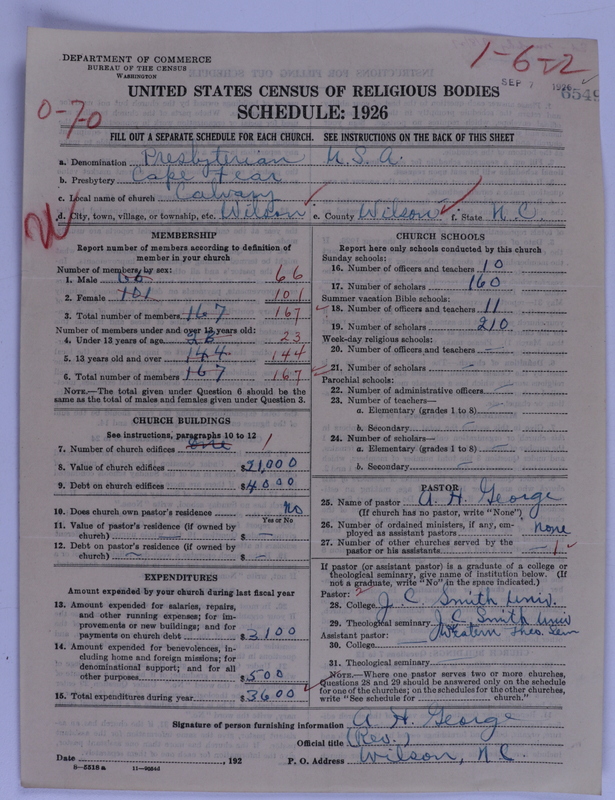 DEPARTMENT OF COMMERCE
BUREAU OF THE CENSUS
WASHINGTON
1-6-22
SEP 7 1926
6549
UNITED STATES CENSUS OF RELIGIOUS BODIES
SCHEDULE: 1926
0-70
FILL OUT A SEPARATE SCHEDULE FOR EACH CHURCH. SEE INSTRUCTIONS ON THE BACK OF THIS SHEET
a. Denomination Presbyterian U.S.A.
b. Presbytery Cape Fear
c. Local name of church Calvary
d. City, town, village, or township, etc. Wilson e. County Wilson f. State N.C.
MEMBERSHIP
Report number of members according to definition of
member in your church
Number of members by sex:
1. Male 66 66
2. Female 101 101
3. Total number of members 167 167
Number of members under and over 13 years old:
4. Under 13 years of age 23 23
5. 13 years old and over 144 144
6. Total number of members 167 167
NOTE.—The total given under Question 6 should be
same as the total of males and females given under Question 3.
CHURCH BUILDINGS
See instructions, paragraphs 10 to 12
7. Number of church edifices one 1
8. Value of church edifices $21,000
9. Debt on church edifices $4000
10. Does church own pastor's residence? No
Yes or No
11. Value of pastor's residence (if owned by
church) — $ —
12. Debt on pastor's residence (if owned by
church) — $ —
EXPENDITURES
Amount expended by church during last fiscal year
13. Amount expended for salaries, repairs,
and other running expenses; for im-
provements or new buildings; and for
payments on church debt $3100
14. Amount expended for benevolences, in-
cluding home and foreign missions; for
denominational support; and for all
other purposes $500
15. Total expenditures during year $3600
CHURCH SCHOOLS
Report here only schools conducted by this church
Sunday schools:
16. Number of officers and teachers 10
17. Number of scholars 160
Summer vacation Bible schools:
18. Number of officers and teachers 11
19. Number of scholars 210
Week-day religious schools:
20. Number of officers and teachers —
21. Number of scholars —
Parochial schools:
22. Number of administrative officers —
23. Number of teachers—
a. Elementary (grades 1 to 8) —
b. Secondary —
24. Number of scholars—
a. Elementary (grades 1 to 8) —
b. Secondary —
PASTOR
25. Name of pastor A. H. George
(If church has no pastor, write "None")
26. Number of ordained ministers, if any, em-
ployed as assistant pastors None
27. Number of other churches served by the
pastor or his assistants — 1
If pastor (or assistant pastor) is a graduate of a college or
theological seminary, give name of institution below. (If
not a graduate, write "No" in the space indicated)
Pastor: 2
28. College J. C. Smith Univ.
29. Theological seminary J. C. Smith Univ
Western Theo. Sem
Assistant pastor:
30. College
31. Theological seminary
NOTE.—Where one pastor serves two or more churches,
Questions 28 and 29 should be answered only on the schedule
for one of the churches; on the schedules for the other churches,
write "See schedule for church."
Signature of person furnishing information A. H. George
Official title (Rev.)
Date , 192 P. O. Address Wilson, N.C.
8—5518 a